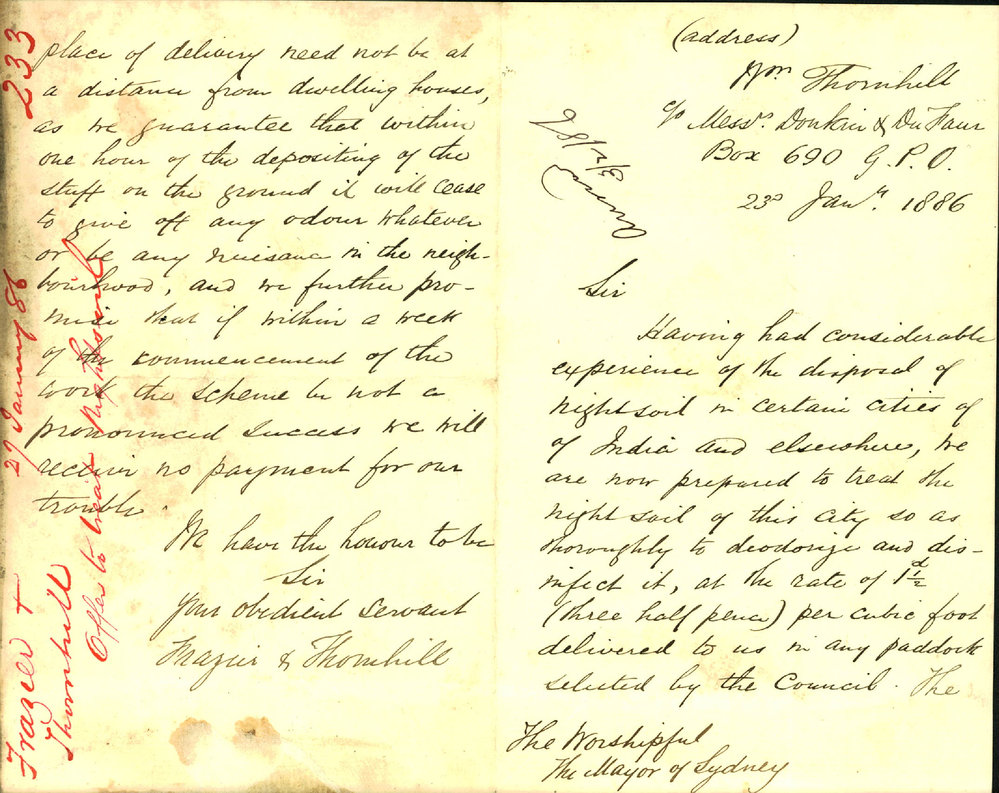 (address)
Wm Thornhill
c/o Messrs. Donkin & Du Faur
Box 690 G. P. O.
23d Jany. 1886
Sir
Having had considerable
experience of the disposal of
nightsoil in certain cities of
of India and elsewhere, we
are now prepared to treat the
night soil of this city so as
thoroughly to deodorize and dis-
infect it, at the rate of 1½d
(three half pence) per cubic foot
delivered to us in any paddock
selected by the Council. The
The Worshipful
The Mayor of Sydney
place of delivery need not be at
a distance from dwelling houses,
as we guarantee that within
one hour of the depositing of the
stuff on the ground it will cease
to give off any odour whatever
or be any nuisance in the neigh-
bourhood, and we further pro-
mise that if within a week
of the commencement of the
work the scheme be not a
pronounced success we will
receive no payment for our
trouble.
We have the honour to be
Sir
Your obedient servant
Frazier & Thornhill
233
27 January 86
Frazer +
Thornhill
Offer to treat Nightsoil
3/2/86